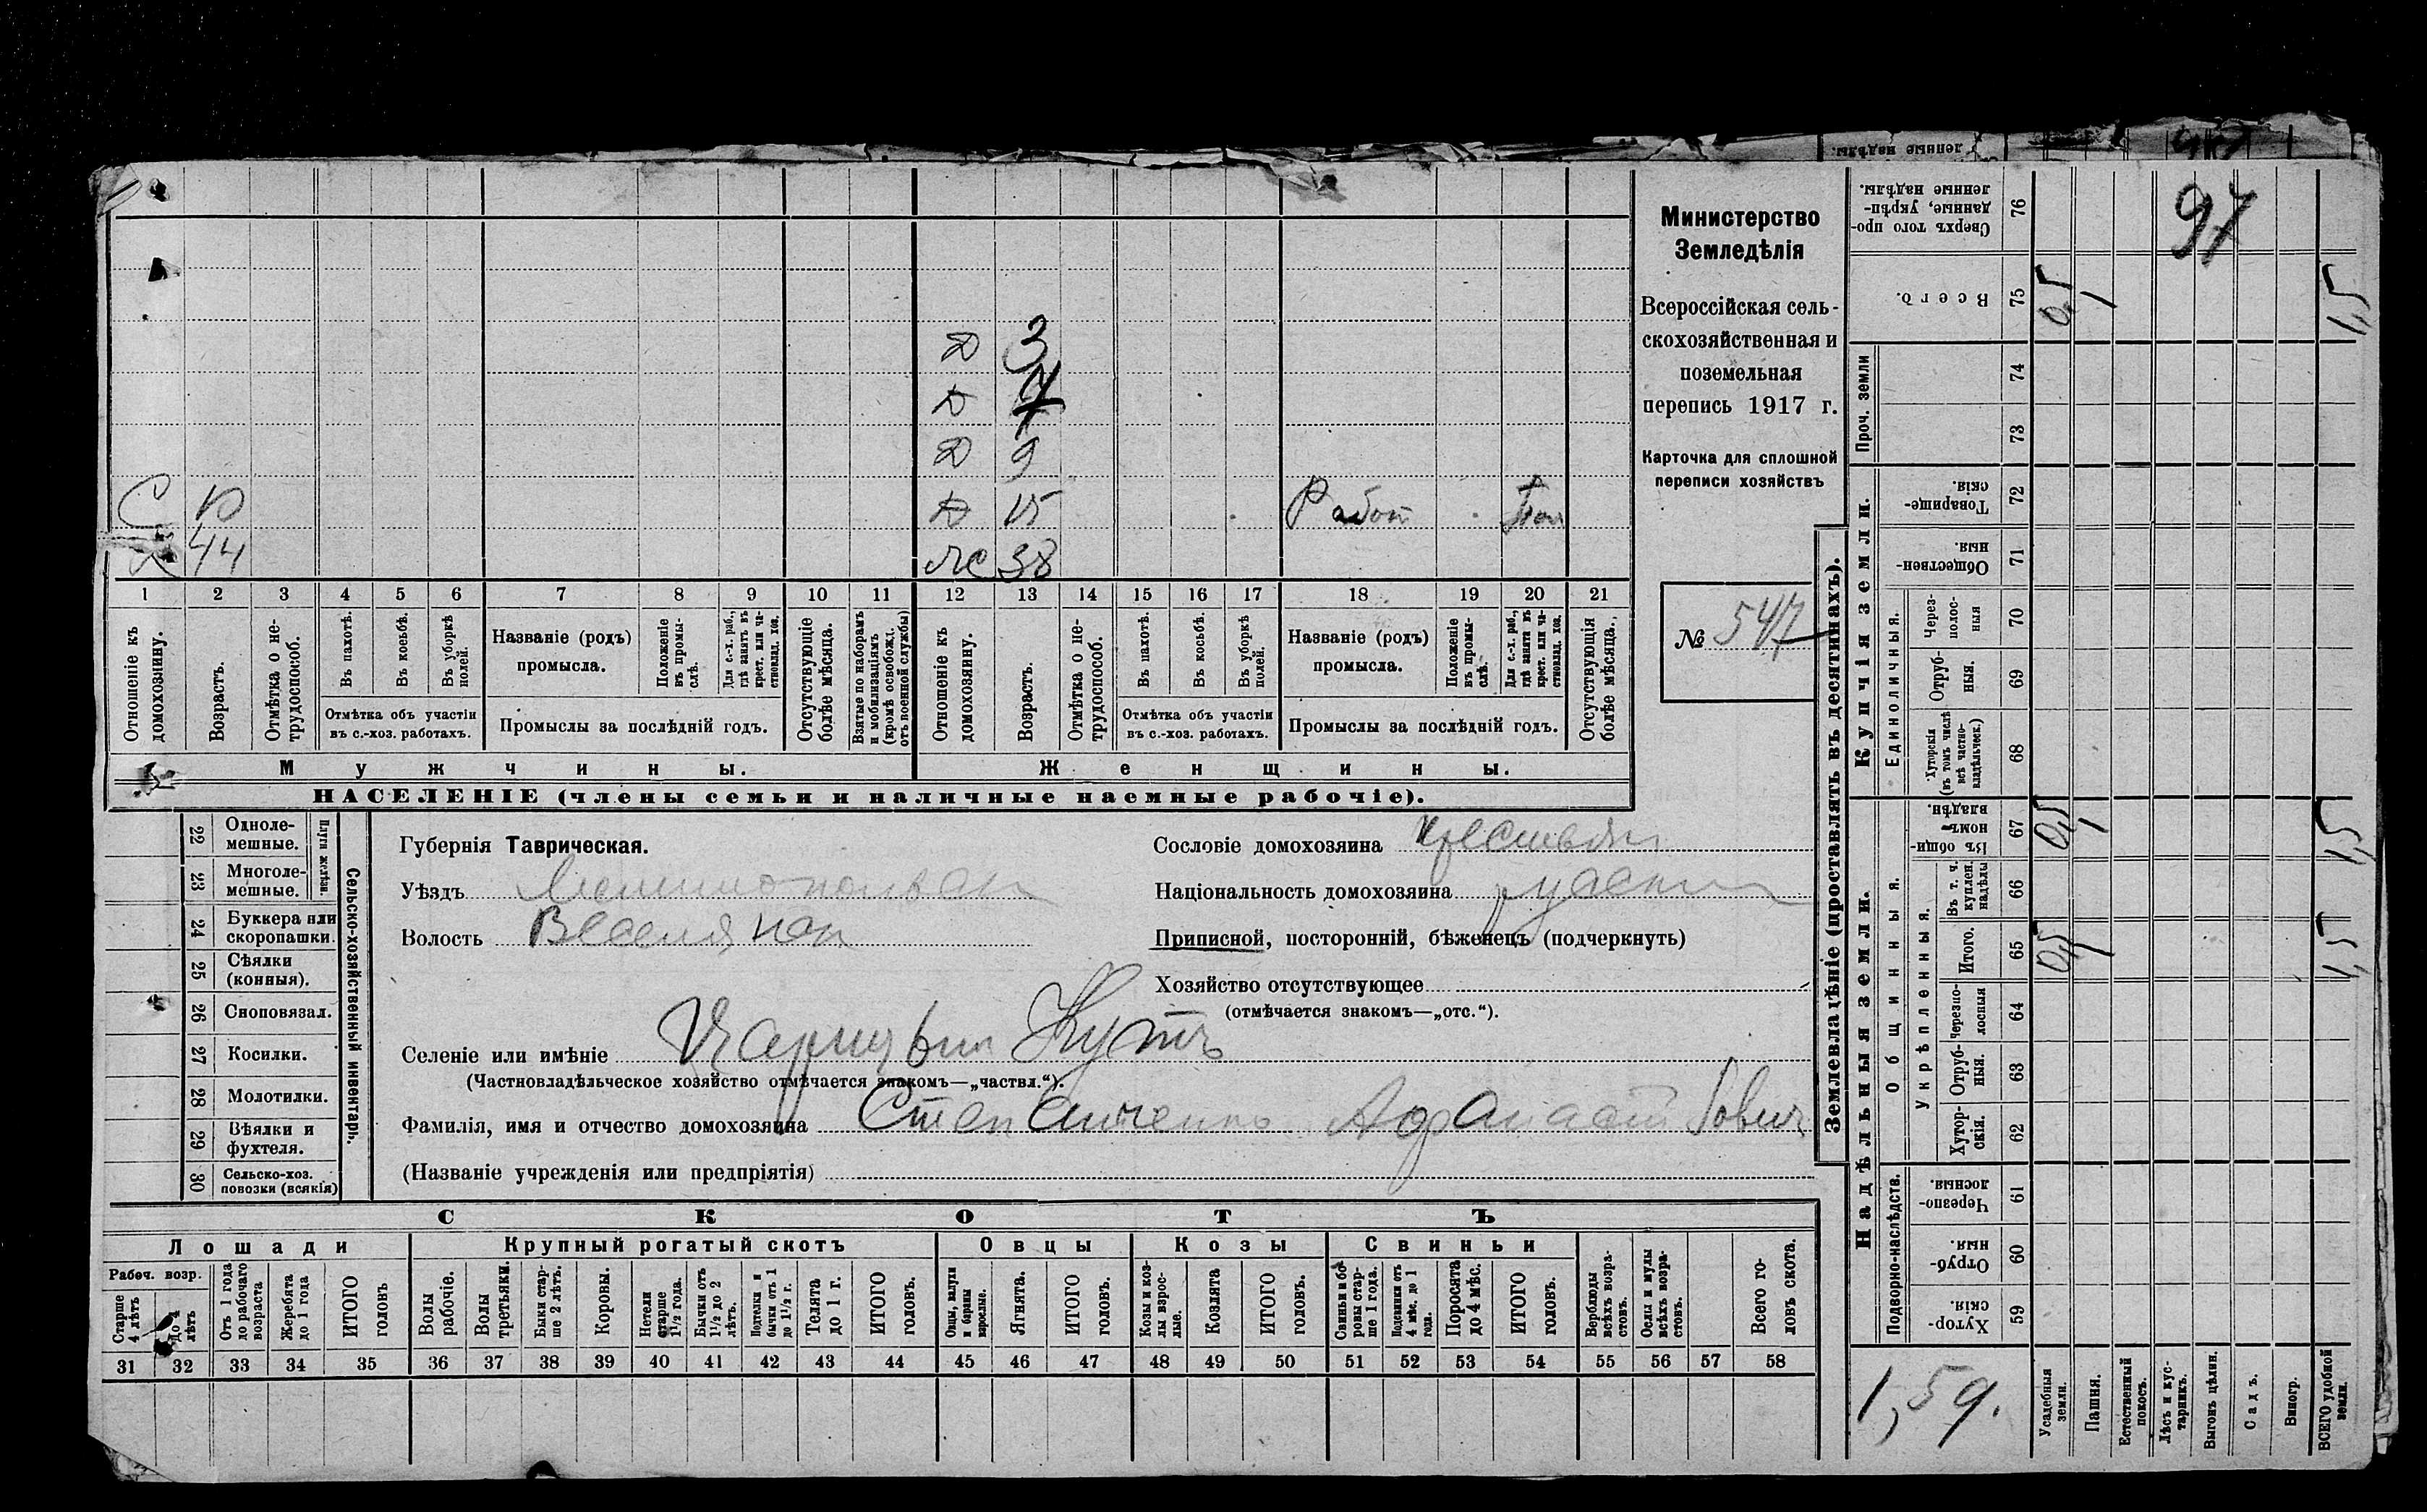 97
Д 3
Д 7
Д 9
С 10 Д 15 Работ
Х 44 Ж 38
1 2 3 4 5 6 7 8 9 10 11 12 13 14 15 16 17 18 19 20 21
Отношеніе къ домохозяину.
Возрастъ.
Отмѣтка о не-
трудоспособ.
Въ пахотѣ.
Въ косьбѣ.
Въ уборкѣ полей.
Отмѣтка объ участіи
въ с.-хоз. работахъ.
Названіе (родъ)
промысла.
Положеніе въ промы-
слѣ.
Для с.-х. раб.,
гдѣ занятъ въ
крест. или ча-
стновлад. хоз.
Промыслы за послѣдній годъ.
Отсутствующіе
болѣе мѣсяца.
Взятые по наборамъ
и мобилизаціямъ
(кромѣ освобожд.
отъ военной службы)
Отношеніе къ домохозяину.
Возрастъ.
Отмѣтка о не-
трудоспособ.
Въ пахотѣ.
Въ косьбѣ.
Въ уборкѣ полей.
Отмѣтка объ участіи
въ с.-хоз. работахъ.
Названіе (родъ)
промысла.
Положеніе въ промы-
слѣ.
Для с.-х. раб.,
гдѣ занята въ
крест. или ча-
стновлад. хоз.
Промыслы за послѣдній годъ.
Отсутствующія
болѣе мѣсяца.
Мужчины. Женщины.
НАСЕЛЕНІЕ (члены семьи и наличные наемные рабочіе).
Министерство
Земледѣлія
Всероссійская сель-
скохозяйственная и
поземельная
перепись 1917 г.
Карточка для сплошной
переписи хозяйствъ
№ 547
22 Одноле-
мешные.
23 Многоле-
мешные.
Плуги желѣзн.
24 Буккера или
скоропашки.
25 Сѣялки
(конныя).
26 Сноповязал.
27 Косилки.
28 Молотилки.
29 Вѣялки и
фухтеля.
30 Сельско-хоз.
повозки (всякія)
Сельско-хозяйственный инвентарь.
Губернія Таврическая.
Уѣздъ Мелитопольск
Волость Веселянск
Сословіе домохозяина крестьян
Національность домохозяина русск
Приписной, посторонній, бѣженецъ (подчеркнуть)
Хозяйство отсутствующее
(отмѣчается знакомъ—„отс.“).
Селеніе или имѣніе Царицынъ Кутъ
(Частновладѣльческое хозяйство отмѣчается знакомъ—„частвл.“).
Фамилія, имя и отчество домохозяина Степаненко
(Названіе учрежденія или предпріятія)
СКОТЪ
Лошади Крупный рогатый скотъ Овцы Козы Свиньи
Рабоч. возр.
Старше
4 лѣтъ
До 4
лѣтъ
Отъ 1 года
до рабочаго
возраста
Жеребята
до 1 года
ИТОГО
головъ
Волы
рабочіе.
Волы
третьяки.
Быки стар-
ше 2 лѣтъ.
Коровы.
Нетели
старше
1½ года.
Бычки отъ
1½ до 2
лѣтъ.
Подтелки и
бычки отъ 1
до 1½ г.
Телята
до 1 г.
ИТОГО
головъ.
Овцы, валухи
и бараны
взрослые.
Ягнята.
ИТОГО
головъ.
Козы и коз-
лы взрос-
лые.
Козлята
ИТОГО
головъ.
Свиньи и бо
ровы стар-
ше 1 года.
Подсвинки отъ
4 мѣс. до 1
года.
Поросята
до 4 мѣс.
ИТОГО
головъ.
Верблюды
всѣхъ возра-
стовъ.
Ослы и мулы
всѣхъ возра-
стовъ.
Всего го-
ловъ скота.
31 32 33 34 35 36 37 38 39 40 41 42 43 44 45 46 47 48 49 50 51 52 53 54 55 56 57 58
Землевладѣніе (проставлять въ десятинахъ).
Сверхъ того про-
данные, укрѣп-
ленные надѣлы.
76
Всего.
75
Проч. земли
74
73
Купчія земли.
Товарище-
скія.
72
Обществен-
ныя.
71
Единоличныя.
Через-
полос-
ныя
70
Отруб-
ныя.
69
Хуторскія
(въ томъ числѣ
всѣ частно-
владѣльческ.)
68
Надѣльныя земли.
Общинныя.
Въ общи-
номъ
владѣн.
67
Укрѣпленныя.
Въ т. ч.
куплен.
надѣлы
66
Итого.
65
Черезпо-
лосныя
64
Отруб-
ныя.
63
Хутор-
скія.
62
Подворно-наслѣдств.
Черезпо-
лосныя.
61
Отруб-
ныя.
60
Хутор-
скія.
59
Усадебныя
земли.
Пашня.
Естественный
покосъ.
Лѣсъ и кус-
тарникъ.
Выгонъ цѣлин.
Садъ.
Виногр.
ВСЕГО удобной
земли.
0,5 1 1,5
0,5 1 1,5
0,5 1 1,5
1,59.